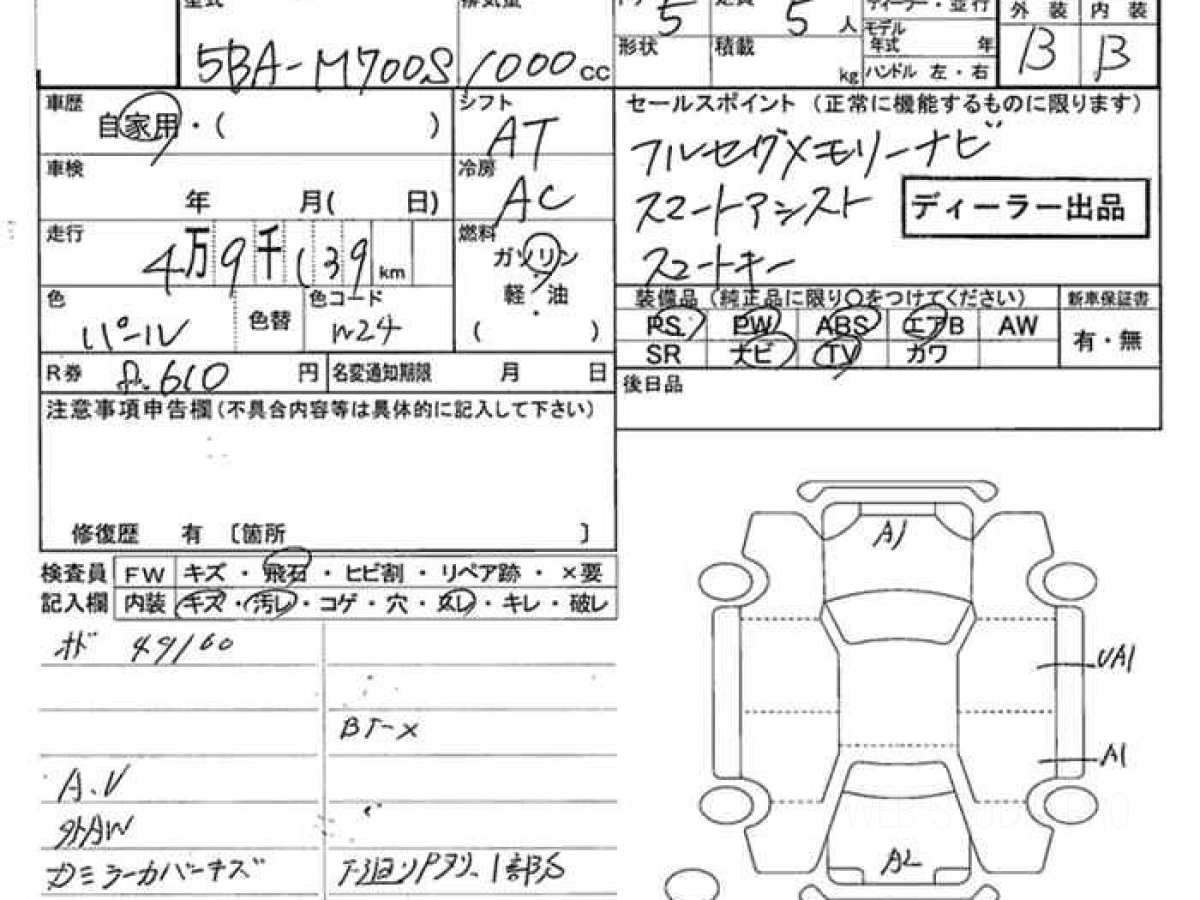 型式 排気量 ドア 定員 ディーラー・並行 外装 内装
5BA-M700S 1000cc 5 5人 モデル年式 年 B B
形状 積載 kg ハンドル 左・右
車歴 自家用・( ) シフト AT
セールスポイント (正常に機能するものに限ります)
フルセグメモリーナビ
車検 年 月( 日) 冷房 AC
スマートアシスト ディーラー出品
走行 4万9千139km 燃料 ガソリン
軽・油
( )
スマートキー
色 パール 色替 色コード W24
装備品 (純正品に限り○をつけてください) 新車保証書
PS PW ABS エアB AW 有・無
SR ナビ TV カワ
R券 610円 名変通知期限 月 日
後日品
注意事項申告欄(不具合内容等は具体的に記入して下さい)
修復歴 有 〔箇所 〕
検査員 FW キズ・飛石・ヒビ割・リペア跡・×要
記入欄 内装 キズ・汚レ・コゲ・穴・スレ・キレ・破レ
オド 49160
A1
UA1
A1
A2
A.V
外AW
カミラーカバーキズ